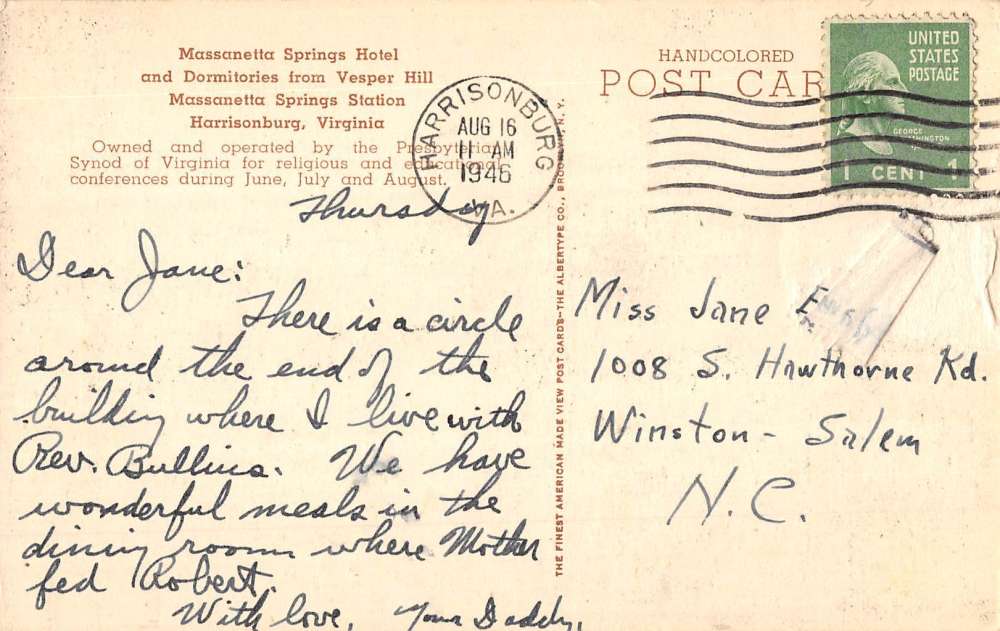 Massanetta Springs Hotel
and Dormitories from Vesper Hill
Massanetta Springs Station
Harrisonburg, Virginia
Owned and operated by the Presbyterian
Synod of Virginia for religious and educational
conferences during June, July and August.
HARRISONBURG
AUG 16
11 AM
1946
VA.
HANDCOLORED
POST CAR
UNITED
STATES
POSTAGE
GEORGE
WASHINGTON
1 CENT 1
THE FINEST AMERICAN MADE VIEW POST CARDS—THE ALBERTYPE CO., BROOKLYN, N. Y.
Thursday
Dear Jane:
There is a circle
around the end of the
building where I live with
Rev. Bullins. We have
wonderful meals in the
dining room where Mother
fed Robert.
With love, Your Daddy.
Miss Jane
1008 S. Hawthorne Rd.
Winston-Salem
N.C.